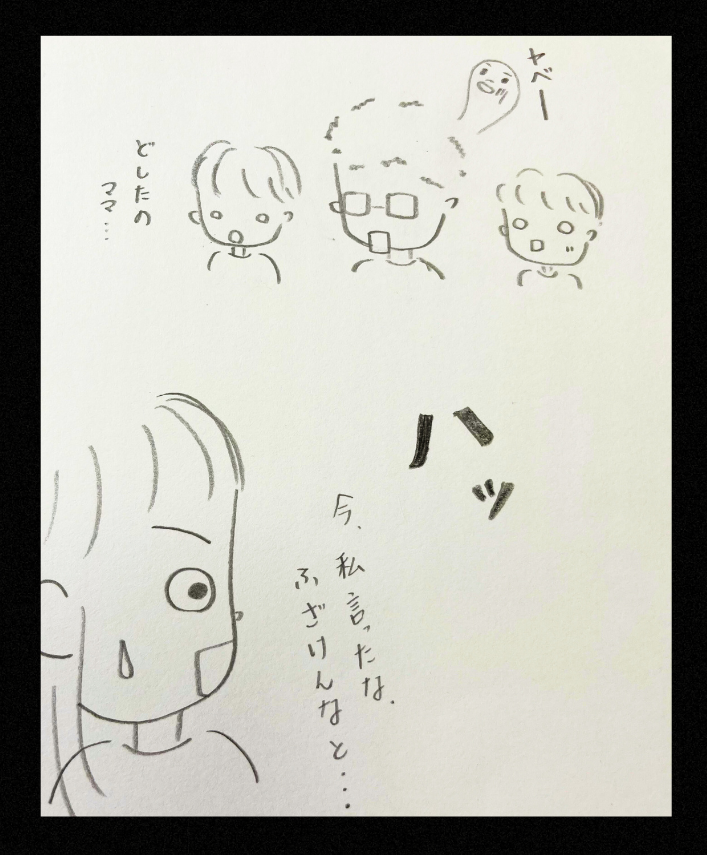 ヤベー
どしたの
ママ…
ハッ
今、私言ったな.
ふざけんなと…